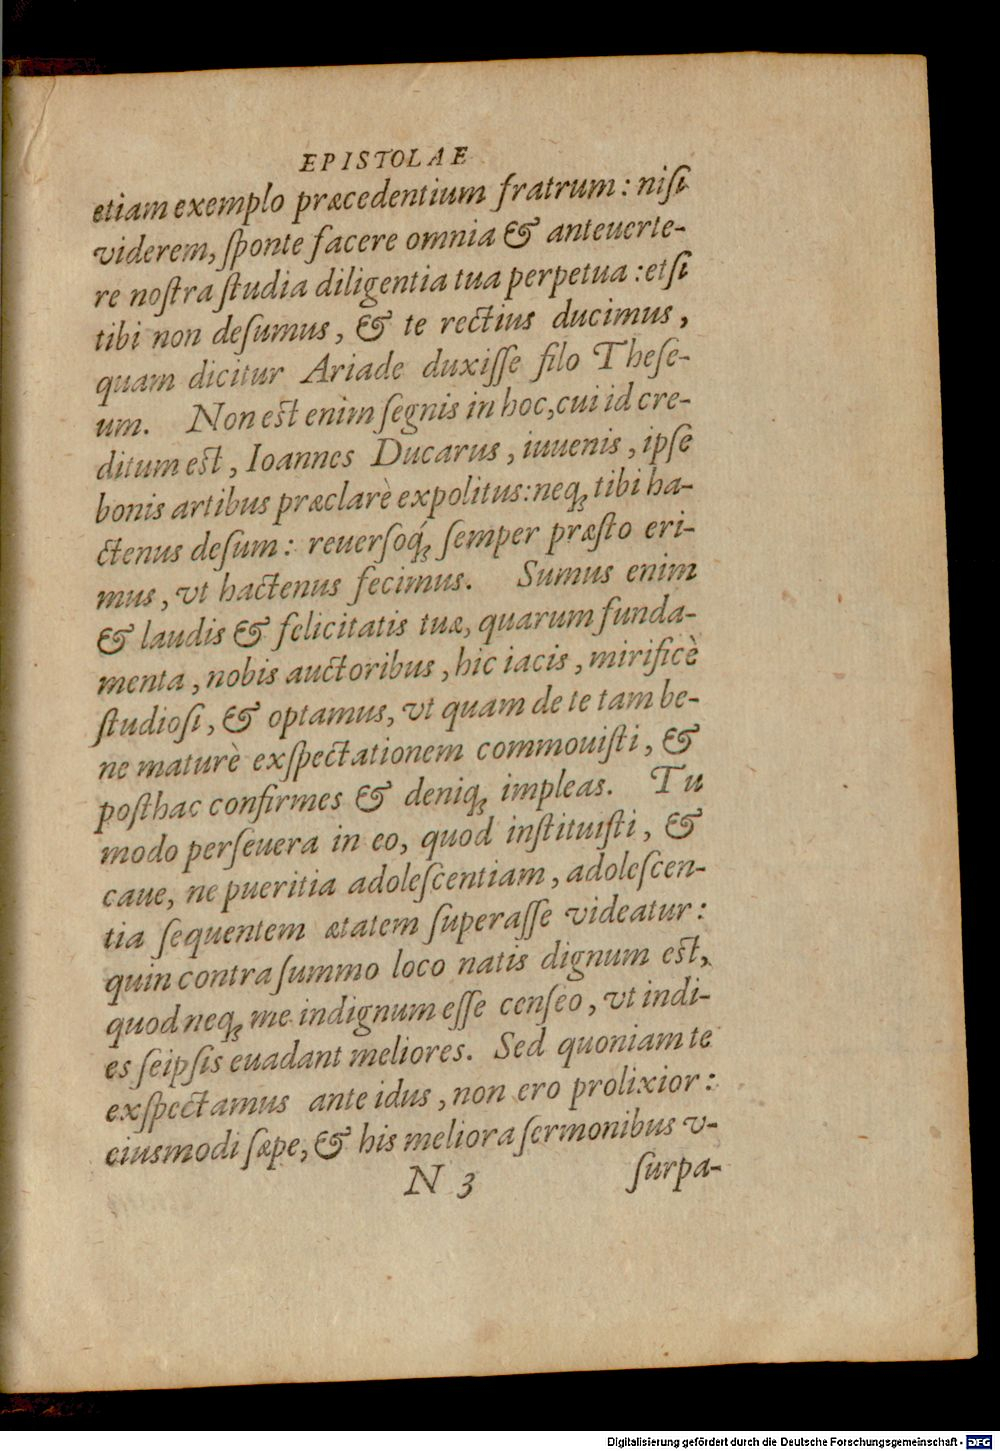 EPISTOLAE
etiam exemplo præcedentium fratrum: niſi
viderem, ſponte facere omnia & anteuerte-
re noſtra ſtudia diligentia tua perpetua: etſi
tibi non deſumus, & te rectius ducimus,
quam dicitur Ariade duxiſſe filo Theſe-
um. Non est enim ſegnis in hoc, cui id cre-
ditum est, Ioannes Ducarus, iuuenis, ipſe
bonis artibus præclarè expolitus: neqꝫ tibi ha-
ctenus deſum: reuerſoqꝫ́ ſemper præſto eri-
mus, vt hactenus fecimus. Sumus enim
& laudis & felicitatis tuæ, quarum funda-
menta, nobis auctoribus, hic iacis, mirificè
ſtudioſi, & optamus, vt quam de te tam be-
ne maturè exſpectationem commouiſti, &
poſthac confirmes & deniqꝫ impleas. Tu
modo perſeuera in eo, quod inſtituiſti, &
caue, ne pueritia adoleſcentiam, adoleſcen-
tia ſequentem ætatem ſuperaſſe videatur:
quin contra ſummo loco natis dignum est,
quod neqꝫ me indignum eſſe cenſeo, vt indi-
es ſeipſis euadant meliores. Sed quoniam te
exſpectamus ante idus, non ero prolixior:
eiusmodi ſæpe, & his meliora ſermonibus v-
N 3 ſurpa-
Digitalisierung gefördert durch die Deutsche Forschungsgemeinschaft - DFG